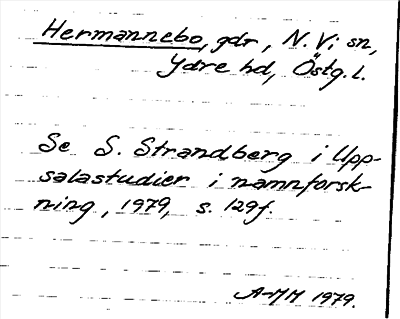 Hermannebo, gdr, N. Vi sn,
Ydre hd, Östg. l.
Se S. Strandberg i Upp-
salastudier i namnforsk-
ning, 1979, s. 129f.
A-MM 1979.